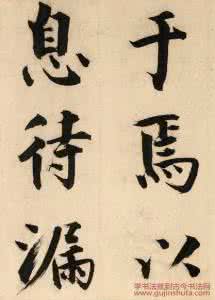 于焉以
息待漏
学书法就到古今书法网
www.gujinshufa.com